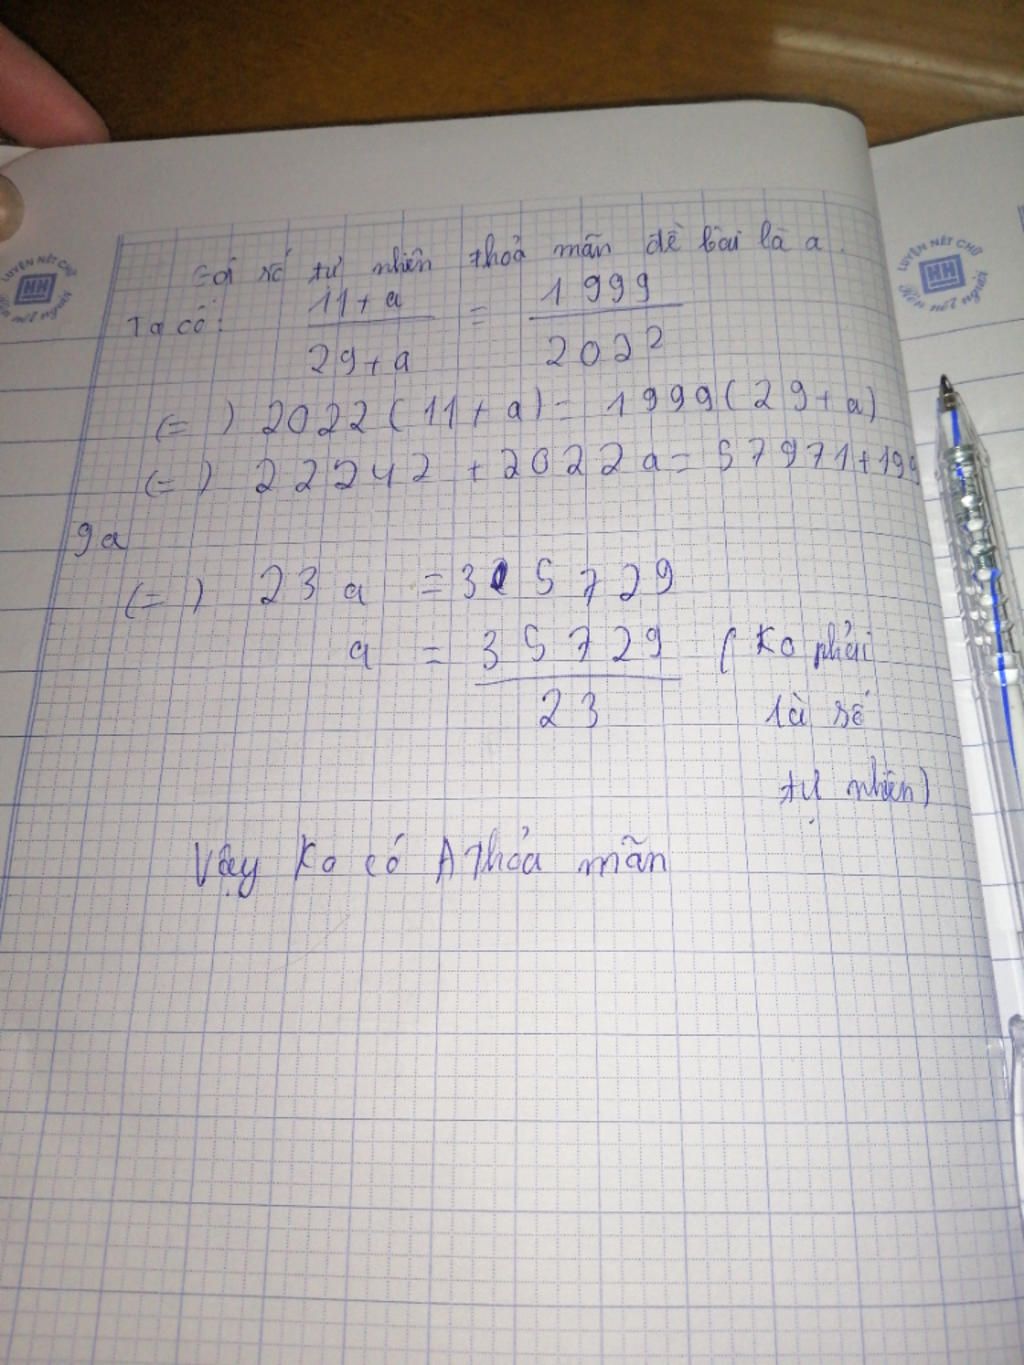 Gọi số tự nhiên thoả mãn đề bài là a.
Ta có: 11+a / 29+a = 1999 / 2022
(=) 2022(11+a) = 1999(29+a)
(=) 22242 + 2022a = 57971+199
9a
(=) 23a = 35729
a = 35729 / 23 ( Ko phải
là số
tự nhiên)
Vậy Ko có A Thỏa mãn
LUYỆN NÉT CHỮ
HH
Rèn nết người
LUYỆN NÉT CHỮ
HH
Rèn nết người